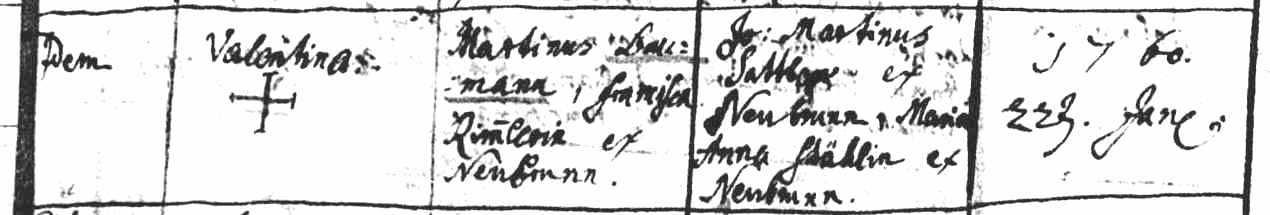 Idem
Valentina.
Martinus Bau=
mann, Francisca
Rim̄lerin ex
Neubrunn.
Jo: Martinus
Sattler ex
Neubrunn, Maria
Anna Stählin ex
Neubrunn.
1760.
22. Jan: